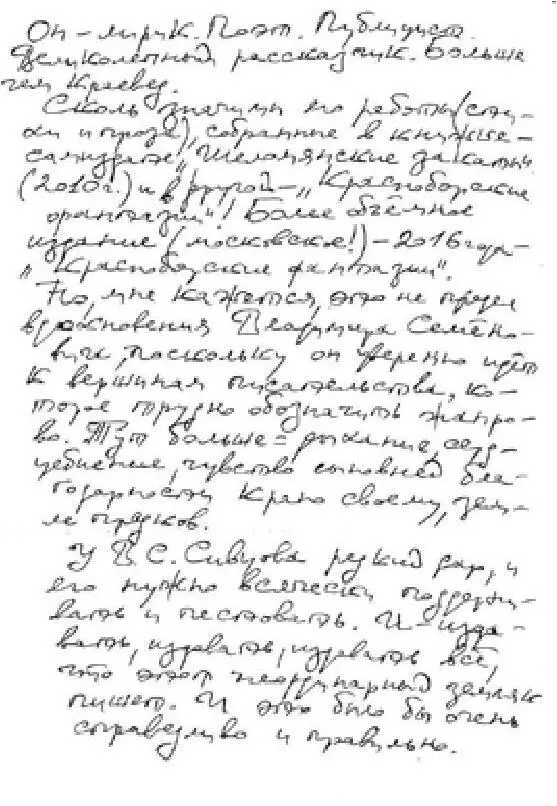 Он – лирик. Поэт. Публицист.
Великолепный рассказчик. Больше
чем краевед.
Сколь значимы его работы (сти-
хи и проза), собранные в книжке-
самиздате „Шеломянские закаты"
(2010г.) и в другой – „Красноборские
фантазии"! Более объёмное
издание (московское!) – 2016 года –
„Красноборские фантазии".
Но, мне кажется, это не предел
вдохновения Владимира Семёно-
вича, поскольку он уверенно идёт
к вершинам писательства, ко-
торое трудно обозначить жанро-
во. Тут больше = дыхание, серд-
цебиение, чувство сыновней бла-
годарности краю своему, зем-
ле предков.
У В.С. Сивцова редкий дар, и
его нужно всячески поддержи-
вать и пестовать. И – изда-
вать, издавать, издавать всё,
что этот неординарный земляк
пишет. И это было бы очень
справедливо и правильно.